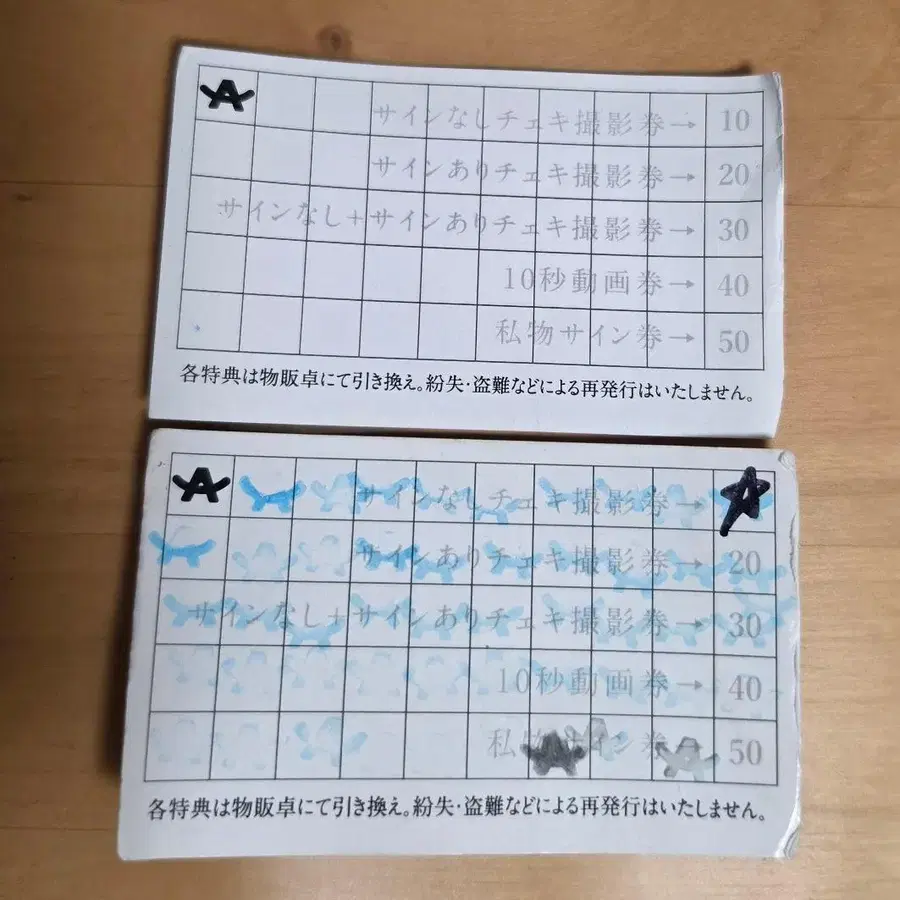 サインなしチェキ撮影券→ 10
サインありチェキ撮影券→ 20
サインなし+サインありチェキ撮影券→ 30
10秒動画券→ 40
私物サイン券→ 50
各特典は物販卓にて引き換え。紛失・盗難などによる再発行はいたしません。
サインなしチェキ撮影券→
サインありチェキ撮影券→ 20
サインなし+サインありチェキ撮影券→ 30
10秒動画券→ 40
私物サイン券 50
各特典は物販卓にて引き換え。紛失・盗難などによる再発行はいたしません。